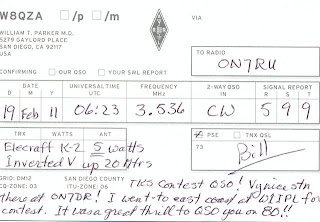 W8QZA /p /m VIA
WILLIAM T. PARKER M.D.
5279 GAYLORD PLACE
SAN DIEGO, CA 92117
USA
TO RADIO
ON7RU
CONFIRMING OUR QSO YOUR SWL REPORT
DATE UNIVERSAL TIME FREQUENCY 2-WAY QSO SIGNAL REPORT
D M Y UTC MHz IN R S T
19 Feb 11 06:23 3.536 CW 5 9 9
TRX WATTS ANT PSE TNX QSL
Elecraft K-2 5 watts 73
Inverted V up 20 Mtrs Bill
GRID: DM12 SAN DIEGO COUNTY
CQ-ZONE: 03 ITU-ZONE: 06 TKS Contest QSO! Vy nice stn
there at ON7DR! I went to east coast at W1IPL for
contest. It was a great thrill to QSO you on 80!!